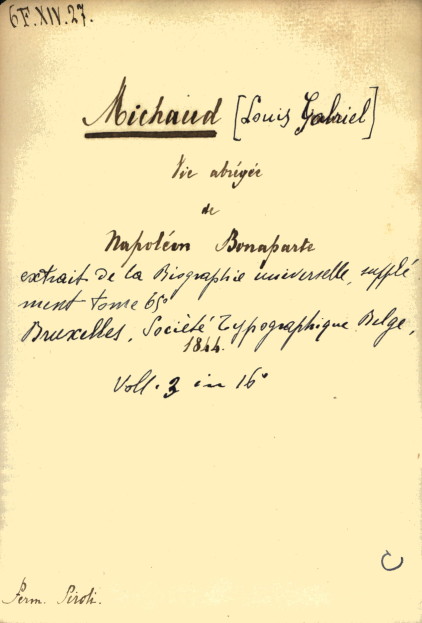 6F.XIV.27.
Michaud [Louis Gabriel]
Vie abrégée
de
Napoléon Bonaparte
extrait de la Biographie universelle, supplé
ment tome 65°
Bruxelles, Société Typographique Belge,
1844.
Voll. 3 in 16°
Perm. Piroli.
C